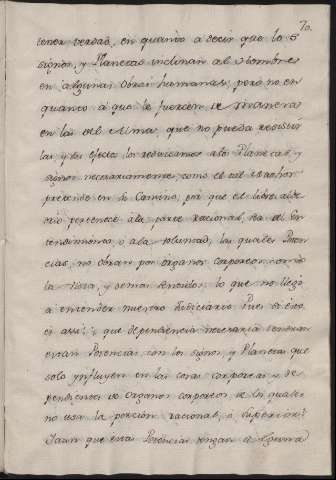 70.
tener verdad, en quanto a decir que los
signos, y Planetas inclinan al hombre
en algunas obras humanas; pero no en
quanto a que le fuercen, de manera
en las del Alma, que no pueda resistir
las y sus efectos los reduzcamos a los Planetas, y
signos necesariamente, como el tal Author
pretende en su Camino, por que el libre alve
drio pertenece à la parte racional, ea al en
tendimiento, o a la voluntad, las quales Poten
cias, no obran por organos corporeos, como
la vista, y demas sentidos, lo que no llegò
a entender nuestro Judiciario. Pues si esto
es assi, que dependencia necesaria tendran
essas Potencias, con los signos, y Planetas que
solo ynfluyen en las cosas corporeas y de
pendientes de Organos corporeos de los quales
no usa la porcion racional, o superior?
Y aun que esta Potencias tengan